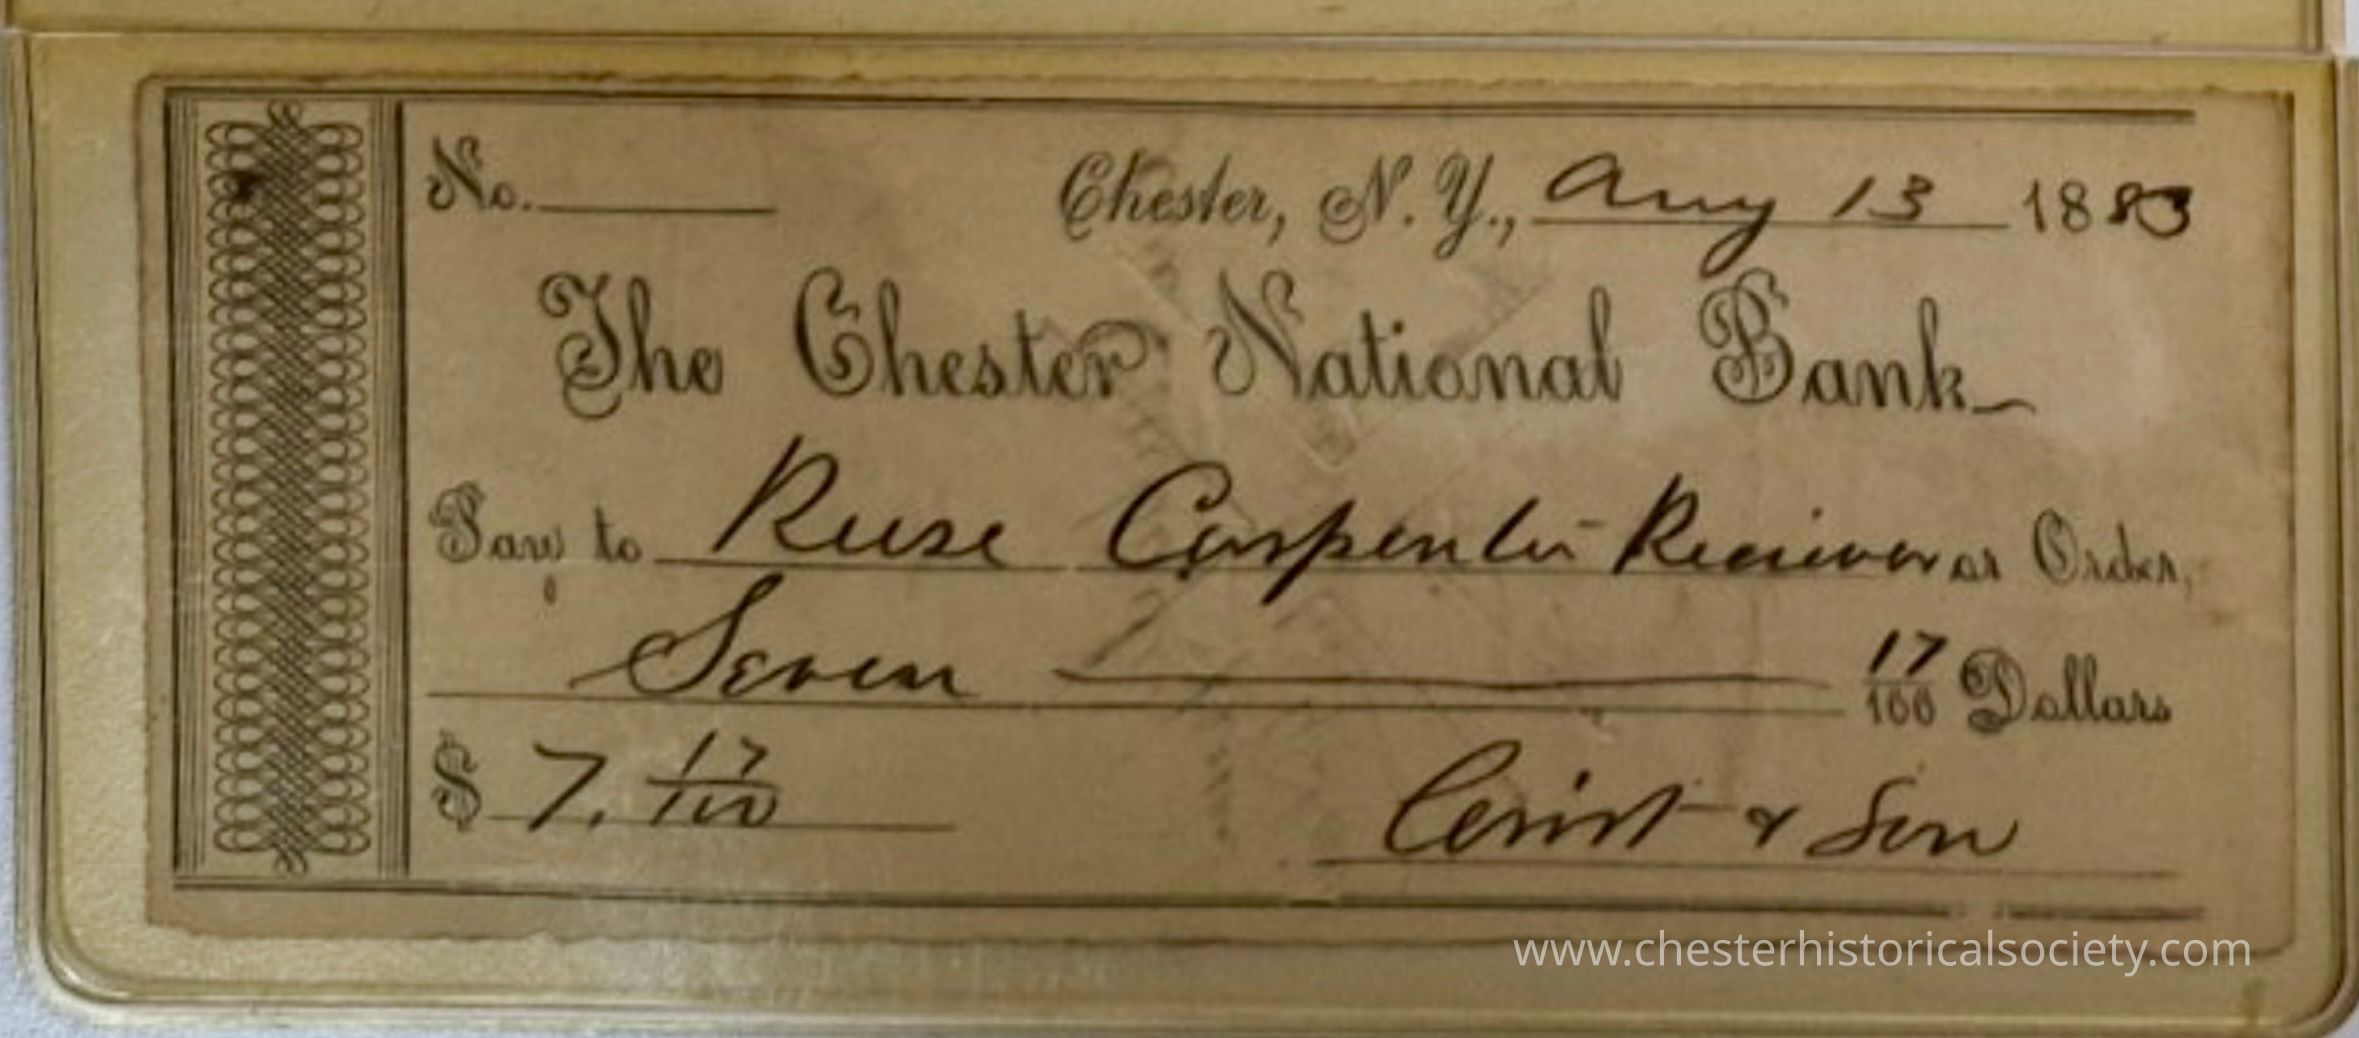 No. Chester, N. Y., Aug 13 1883
The Chester National Bank
Pay to Reese Carpenter Receiver or Order,
Seven 17/100 Dollars
$ 7. 17/100 & Son
www.chesterhistoricalsociety.com